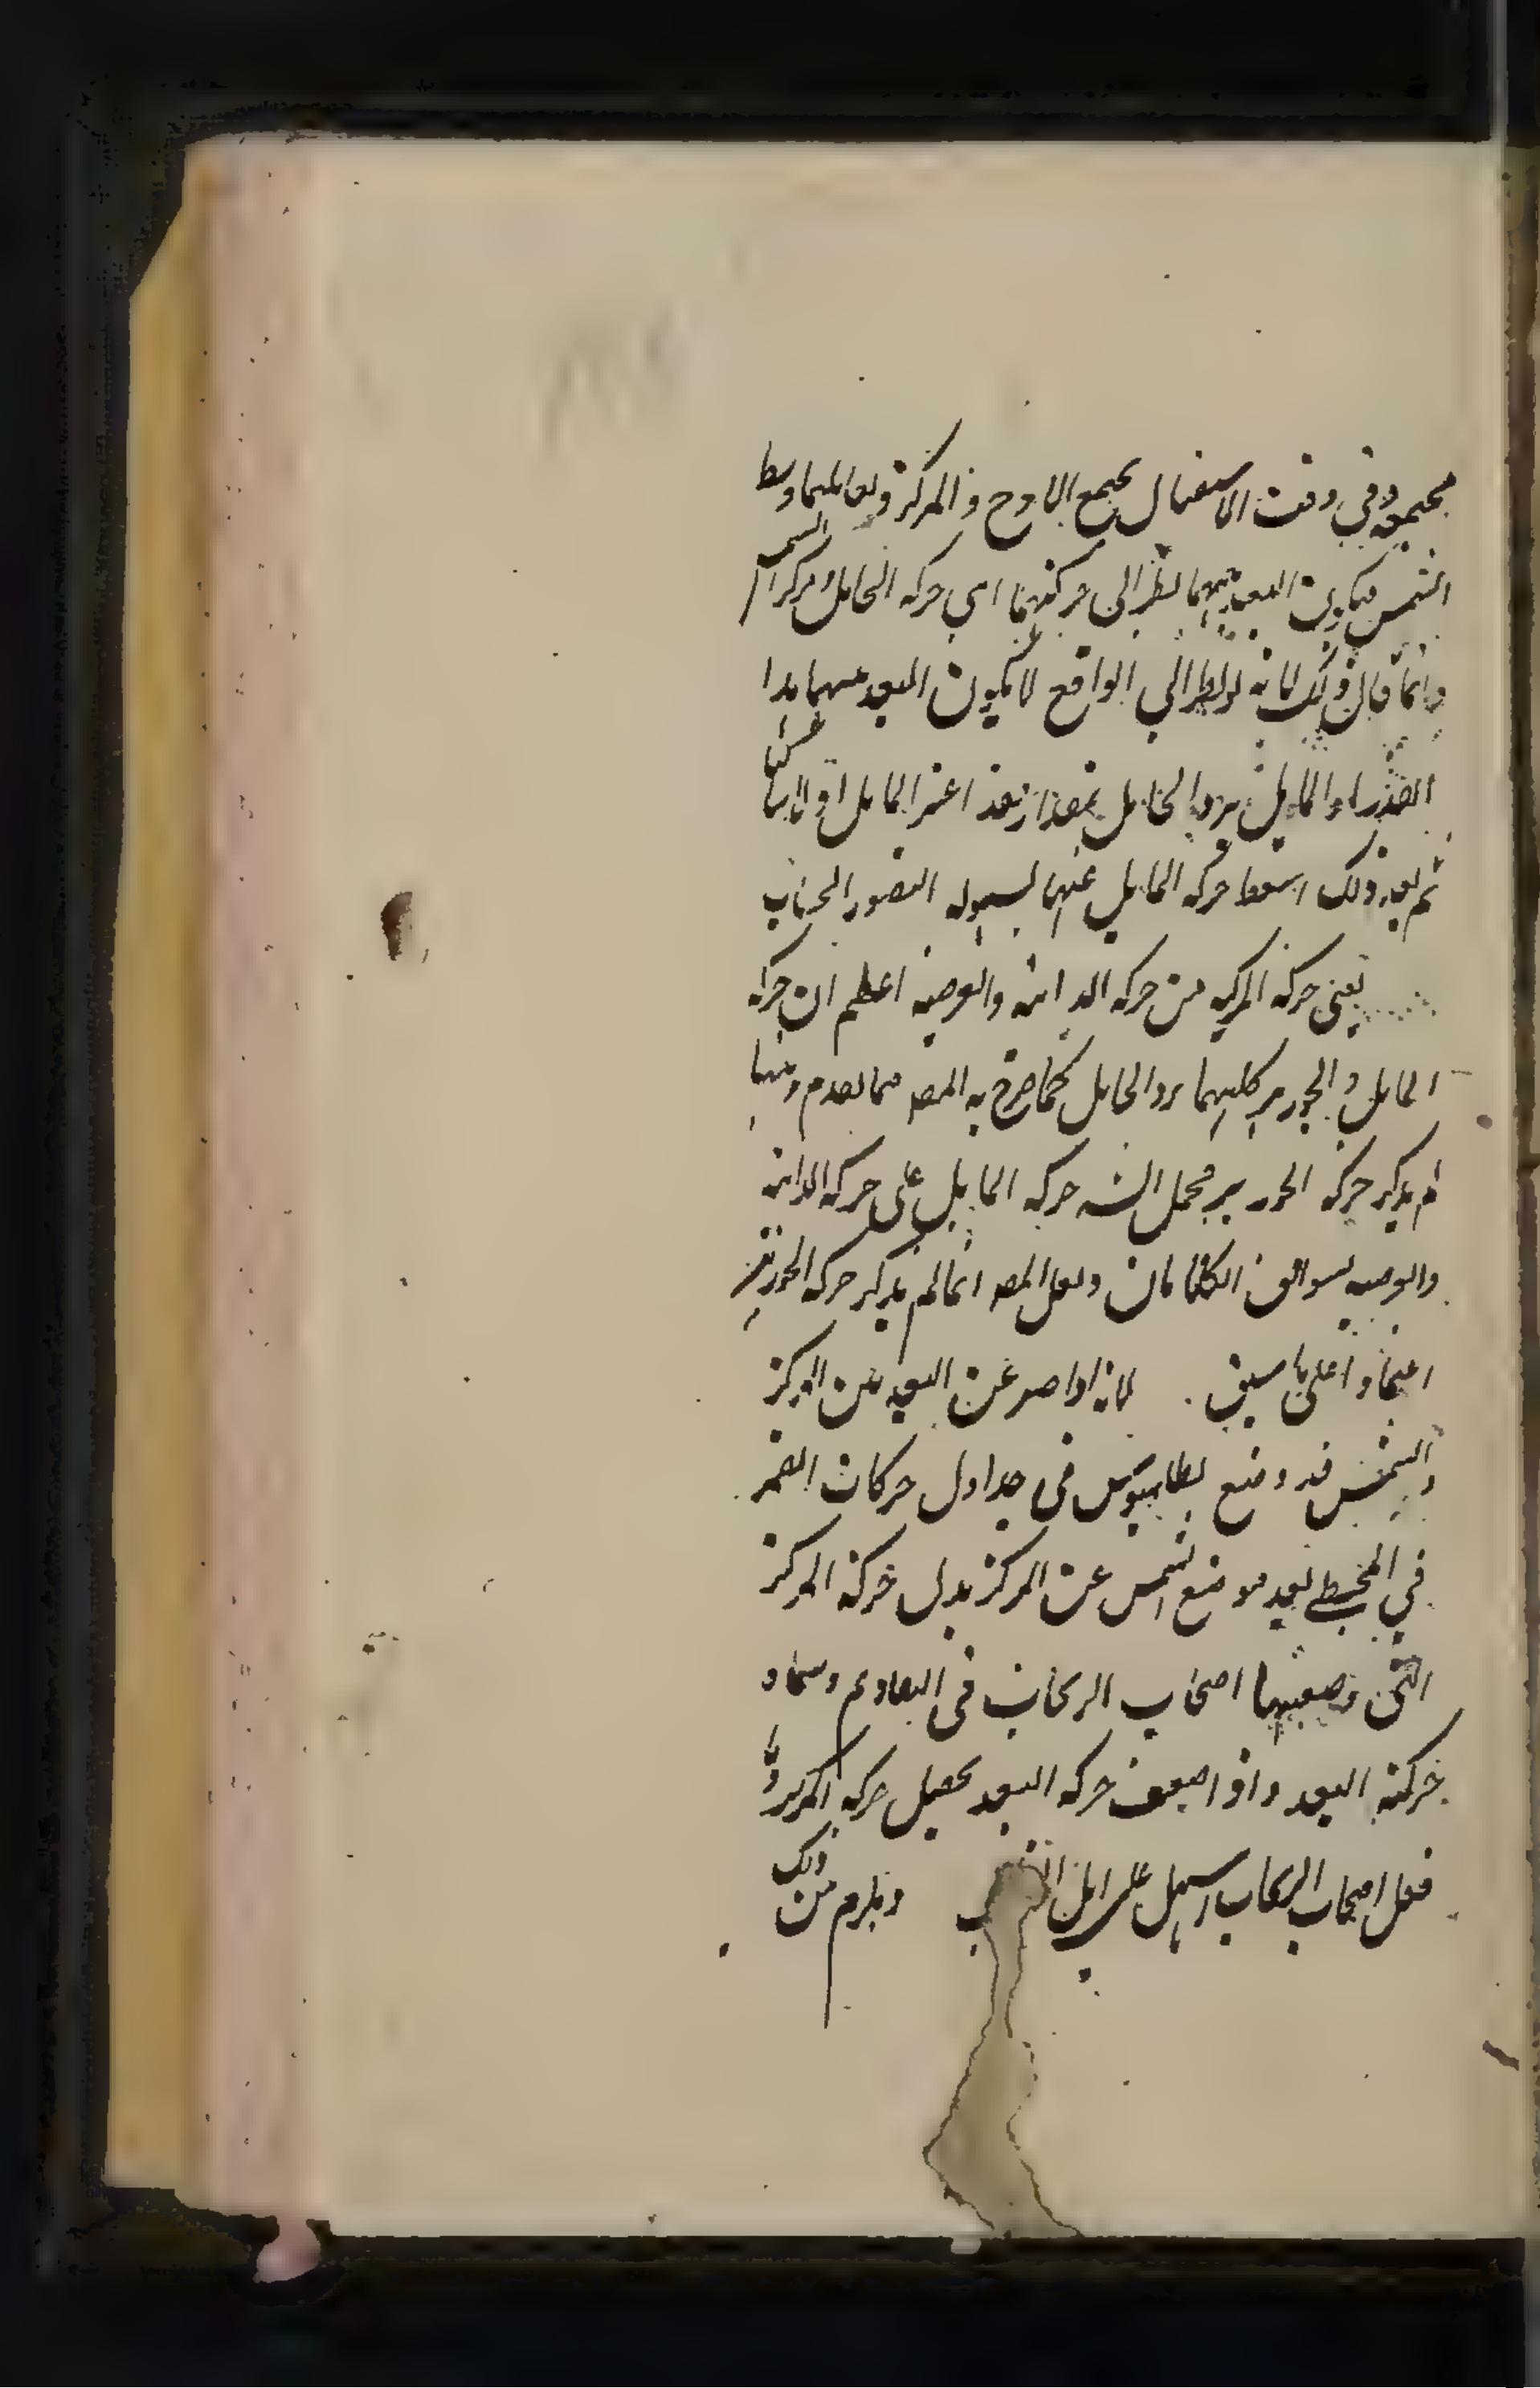 مجتمعة وفي وقت الاستقبال يجتمع الاوج والمركز ويقابلهما وسط
الشمس فيكون البعد بينهما بالنظر الى حركتهما اي حركة الحامل ومركز الشمس
وانما قال ذلك لانه لو نظر الى الواقع لا يكون البعد بينهما بهذا
القدر اذ المايل يرد الحامل بمقدار فقد اعتبر المايل اولا
ثم بعد ذلك اسقط حركة المايل عنهما لسهولة التصور الحساب
يعني حركة المركبة من حركة الذاتية والعرضية اعلم ان حركة
المايل والجوزهر كليهما يرد الحامل كما صرح به المصـ فيما تقدم وههنا
لم يذكر حركة الجوزهر فيحمل حركة المايل على حركة الذاتية
والعرضية ليتوافق الكلامان ولعل المصـ انما لم يذكر حركة الجوزهر
اعتمادا على ما سبق لما بعد عن البعد بين المركز
والشمس قد وضع بطلميوس في جداول حركات القمر
في المجسطي بعد موضع الشمس عن المركز بدل حركة المركز
التي وضعها اصحاب الزيجات في التقاويم وسماه
حركة البعد واذا ضعف حركة البعد يحصل حركة المركز
فعل اصحاب الزيجات اسهل على اهل ويلزم من ذلك